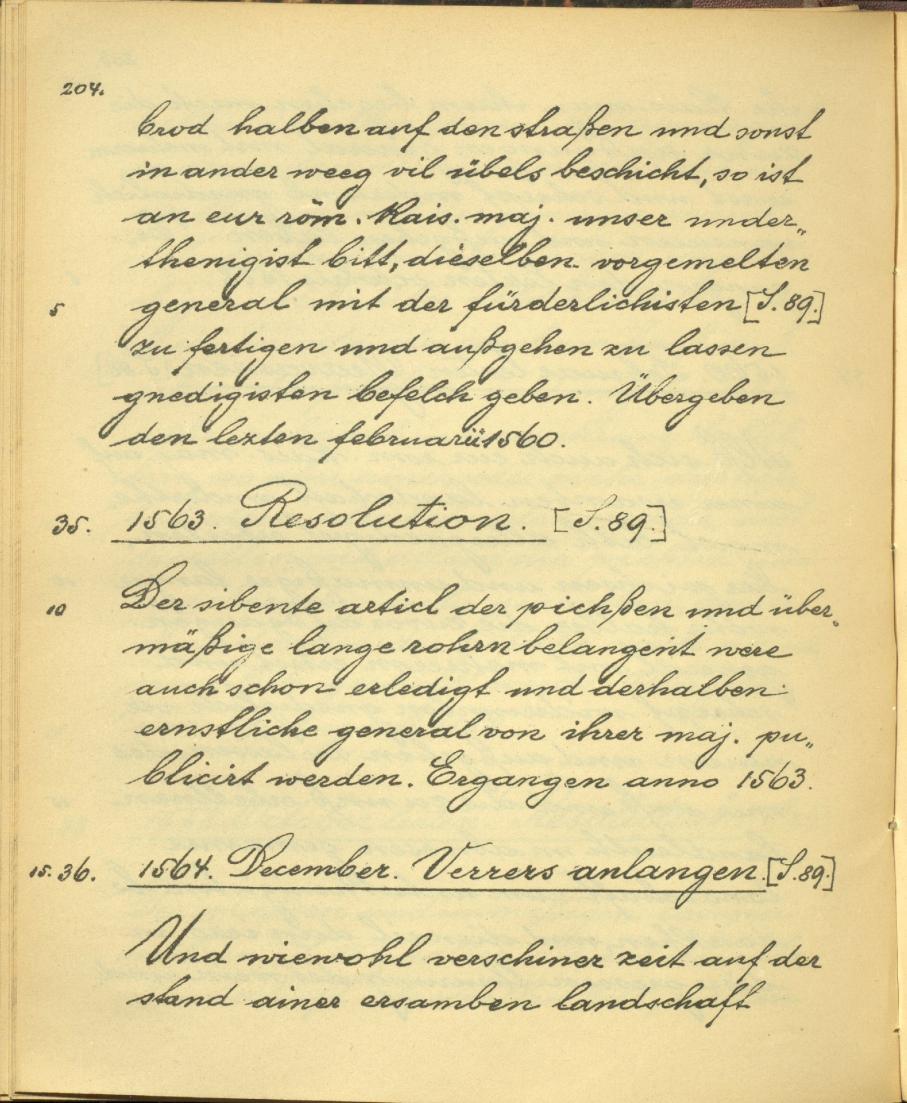 204.
brod halben auf den straßen und sonst
in ander weeg vil übels beschicht, so ist
an eur röm. Kais. maj. unser under„
thenigist bitt, dieselben vorgemelten
5 general mit der fürderlichisten [S. 89.]
zu fertigen und außgehen zu lassen
gnedigisten befelch geben. Übergeben
den lezten februarii 1560.
35. 1563. Resolution. [S. 89.]
10 Der sibente articl der pichßen und über„
mäßige lange rohrn belangent were
auch schon erledigt und derhalben
ernstliche general von ihrer maj. pu„
blicirt werden. Ergangen anno 1563.
15. 36. 1564. December. Verrers anlangen. [S. 89.]
Und wiewohl verschiner zeit auf der
stand ainer ersamben landschaft